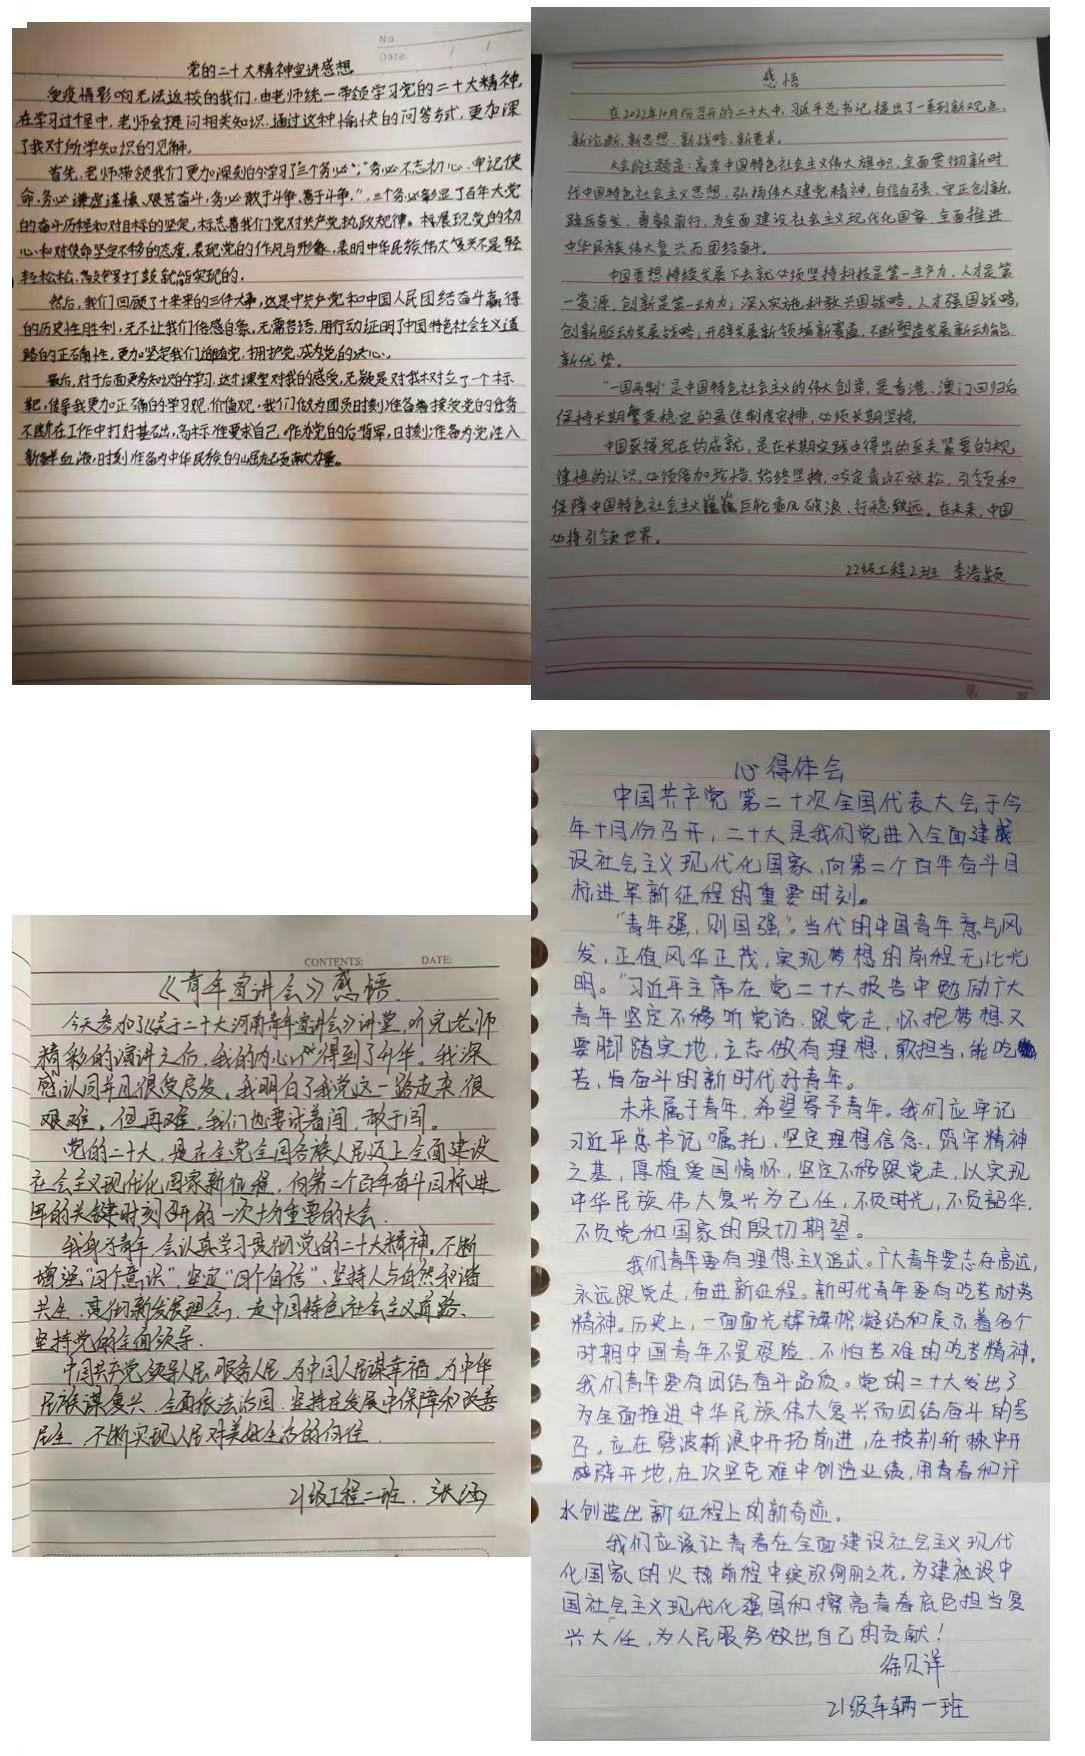 No.
Date.
党的二十大精神宣讲感想
受疫情影响无法返校的我们,由老师统一带领学习党的二十大精神,
在学习过程中,老师会提问相关知识,通过这种愉快的问答方式,更加深
了我对所学知识的见解。
首先,老师带领我们更加深刻的学习了“三个务必”:“务必不忘初心、牢记使
命,务必谦虚谨慎、艰苦奋斗,务必敢于斗争、善于斗争。”,三个务必彰显了百年大党
的奋斗历程和对目标的坚定,标志着我们党对共产党执政规律。
心和对使命坚定不移的态度,表现党的作风与形象,表明中华民族伟大复兴不是轻
轻松松、敲锣打鼓就能实现的。
然后,我们回顾了十年来的三件大事,这是中共产党和中国人民团结奋斗赢得
的历史性胜利,无不让我们倍感自豪,无需言语,用行动证明了中国特色社会主义道
路的正确性,更加坚定我们跟随党、拥护党、成为党的决心。
最后,对于后面更多知识的学习,这个课堂对我的感受,无疑是对我树立了一个标
靶,倡导我更加正确的学习观、价值观,我们做为团员时刻准备着接受党的任务
不断在工作中打好基础,高标准要求自己,作为党的后备军,日时刻准备为党注入
新鲜血液,时刻准备为中华民族的崛起贡献力量。
感悟
在2022年10月份召开的二十大中,习近平总书记提出了一系列新观点、
新论断、新思想、新战略、新要求。
大会的主题是:高举中国特色社会主义伟大旗帜,全面贯彻新时
代中国特色社会主义思想,弘扬伟大建党精神,自信自强、守正创新,
踔厉奋发、勇毅前行,为全面建设社会主义现代化国家、全面推进
中华民族伟大复兴而团结奋斗。
中国要想持续发展下去就必须坚持科技是第一生产力,人才是第
一资源,创新是第一动力;深入实施科教兴国战略,人才强国战略,
创新驱动发展战略,开辟发展新领域新赛道,不断塑造发展新动能
新优势。
“一国两制”是中国特色社会主义的伟大创举,是香港、澳门回归后
保持长期繁荣稳定的最佳制度安排,必须长期坚持。
中国获得现在的成就,是在长期实践中得出的至关紧要的规
律性的认识,必须倍加珍惜、始终坚持,咬定青山不放松,引领和
保障中国特色社会主义巍巍巨轮乘风破浪、行稳致远。在未来,中国
必将引领世界。
22级工程2班 李浩颖
第 页
CONTENTS: DATE:
《青年宣讲会》感悟
今天参加了《关于二十大河南青年宣讲会》讲堂,听完老师
精彩的演讲之后,我的内心得到了升华。我深
感认同并且很受启发。我明白了我党这一路走来很
艰难。但再难,我们也要试着闯,敢于闯。
党的二十大,是在全党全国各族人民迈上全面建设
社会主义现代化国家新征程,向第二个百年奋斗目标进
军的关键时刻召开的一次十分重要的大会。
我身为青年,会认真学习贯彻党的二十大精神。不断
增强“四个意识”,坚定“四个自信”、坚持人与自然和谐
共生,贯彻新发展理念,走中国特色社会主义道路、
坚持党的全面领导。
中国共产党领导人民,服务人民,为中国人民谋幸福,为中华
民族谋复兴,全面依法治国,坚持在发展中保障和改善
民生,不断实现人民对美好生活的向往。
21级工程二班. 张
心得体会
中国共产党第二十次全国代表大会于今
年十月份召开,二十大是我们党进入全面建
设社会主义现代化国家,向第二个百年奋斗目
标进军新征程的重要时刻。
“青年强,则国强”。当代的中国青年意气风
发,正值风华正茂,实现梦想的前程无比光
明。“习近平主席在党二十大报告中勉励广大
青年坚定不移听党话、跟党走,怀抱梦想又
要脚踏实地,立志做有理想,敢担当,能吃
苦,肯奋斗的新时代好青年。
未来属于青年,希望寄予青年。我们应牢记
习近平总书记嘱托,坚定理想信念,筑牢精神
之基,厚植爱国情怀,坚定不移跟党走,以实现
中华民族伟大复兴为己任,不负时光,不负韶华,
不负党和国家的殷切期望。
我们青年要有理想主义追求。广大青年要志存高远,
永远跟党走,奋进新征程。新时代青年要有吃苦耐劳
精神。历史上,一面面光辉旗帜凝结和展示着各个
时期中国青年不畏艰险、不怕苦难的吃苦精神。
我们青年要有团结奋斗品质。党的二十大发出了
为全面推进中华民族伟大复兴而团结奋斗的号
召,应在劈波斩浪中开拓前进,在披荆斩棘中开
辟开地,在攻坚克难中创造业绩,用青春和汗
水创造出新征程上的新奇迹。
我们应该让青春在全面建设社会主义现代
化国家的火热前程中绽放绚丽之花,为建设中
国社会主义现代化强国和擦亮青春底色担当复
兴大任,为人民服务做出自己的贡献!
徐贝详
21级车辆一班